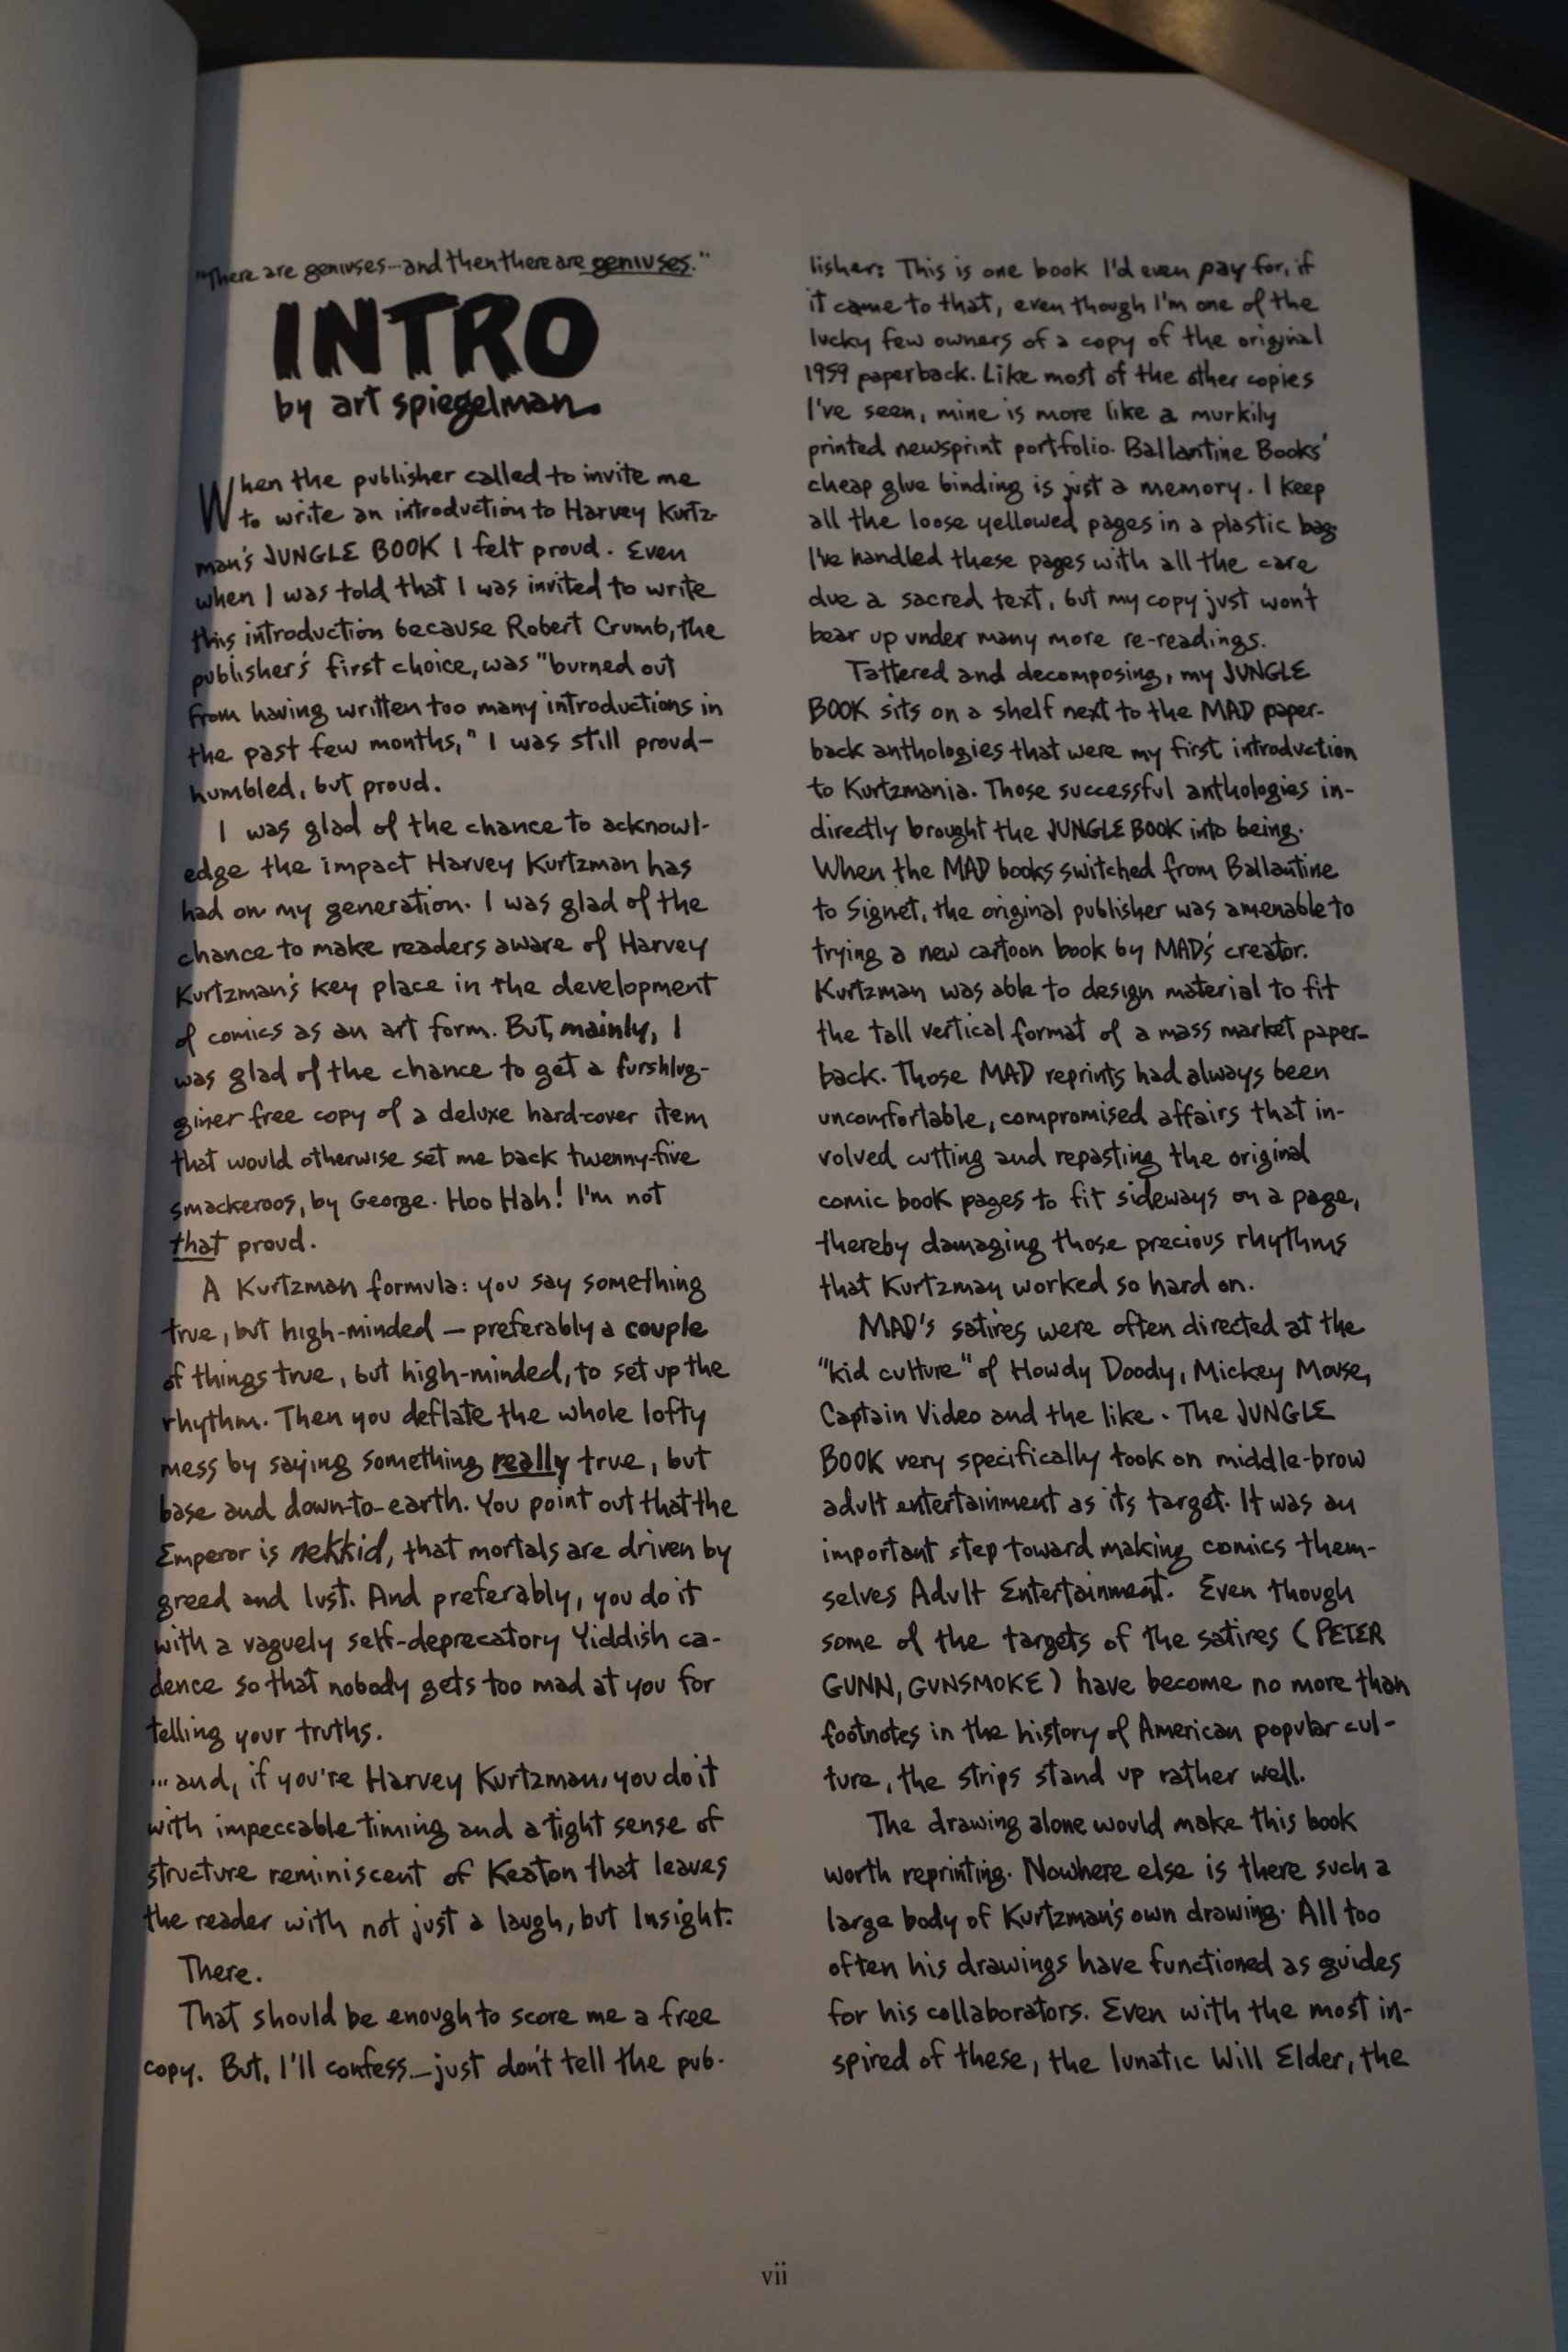 "There are geniuses...and then there are geniuses."
INTRO
by art spiegelman
When the publisher called to invite me
to write an introduction to Harvey Kurtz-
man's JUNGLE BOOK I felt proud. Even
when I was told that I was invited to write
this introduction because Robert Crumb, the
publisher's first choice, was "burned out
from having written too many introductions in
the past few months," I was still proud—
humbled, but proud.
I was glad of the chance to acknowl-
edge the impact Harvey Kurtzman has
had on my generation. I was glad of the
chance to make readers aware of Harvey
Kurtzman's key place in the development
of comics as an art form. But, mainly, I
was glad of the chance to get a furshlug-
giner free copy of a deluxe hard-cover item
that would otherwise set me back twenny-five
smackeroos, by George. Hoo Hah! I'm not
that proud.
A Kurtzman formula: you say something
true, but high-minded — preferably a couple
of things true, but high-minded, to set up the
rhythm. Then you deflate the whole lofty
mess by saying something really true, but
base and down-to-earth. You point out that the
Emperor is nekkid, that mortals are driven by
greed and lust. And preferably, you do it
with a vaguely self-deprecatory Yiddish ca-
dence so that nobody gets too mad at you for
telling your truths.
...and, if you're Harvey Kurtzman, you do it
with impeccable timing and a tight sense of
structure reminiscent of Keaton that leaves
the reader with not just a laugh, but Insight.
There.
That should be enough to score me a free
copy. But, I'll confess—just don't tell the pub-
lisher: This is one book I'd even pay for, if
it came to that, even though I'm one of the
lucky few owners of a copy of the original
1959 paperback. Like most of the other copies
I've seen, mine is more like a murkily
printed newsprint portfolio. Ballantine Books'
cheap glue binding is just a memory. I keep
all the loose yellowed pages in a plastic bag.
I've handled these pages with all the care
due a sacred text, but my copy just won't
bear up under many more re-readings.
Tattered and decomposing, my JUNGLE
BOOK sits on a shelf next to the MAD paper-
back anthologies that were my first introduction
to Kurtzmania. Those successful anthologies in-
directly brought the JUNGLE BOOK into being.
When the MAD books switched from Ballantine
to Signet, the original publisher was amenable to
trying a new cartoon book by MAD's creator.
Kurtzman was able to design material to fit
the tall vertical format of a mass market paper-
back. Those MAD reprints had always been
uncomfortable, compromised affairs that in-
volved cutting and repasting the original
comic book pages to fit sideways on a page,
thereby damaging those precious rhythms
that Kurtzman worked so hard on.
MAD's satires were often directed at the
"kid culture" of Howdy Doody, Mickey Mouse,
Captain Video and the like. The JUNGLE
BOOK very specifically took on middle-brow
adult entertainment as its target. It was an
important step toward making comics them-
selves Adult Entertainment. Even though
some of the targets of the satires (PETER
GUNN, GUNSMOKE) have become no more than
footnotes in the history of American popular cul-
ture, the strips stand up rather well.
The drawing alone would make this book
worth reprinting. Nowhere else is there such a
large body of Kurtzman's own drawing. All too
often his drawings have functioned as guides
for his collaborators. Even with the most in-
spired of these, the lunatic Will Elder, the
vii